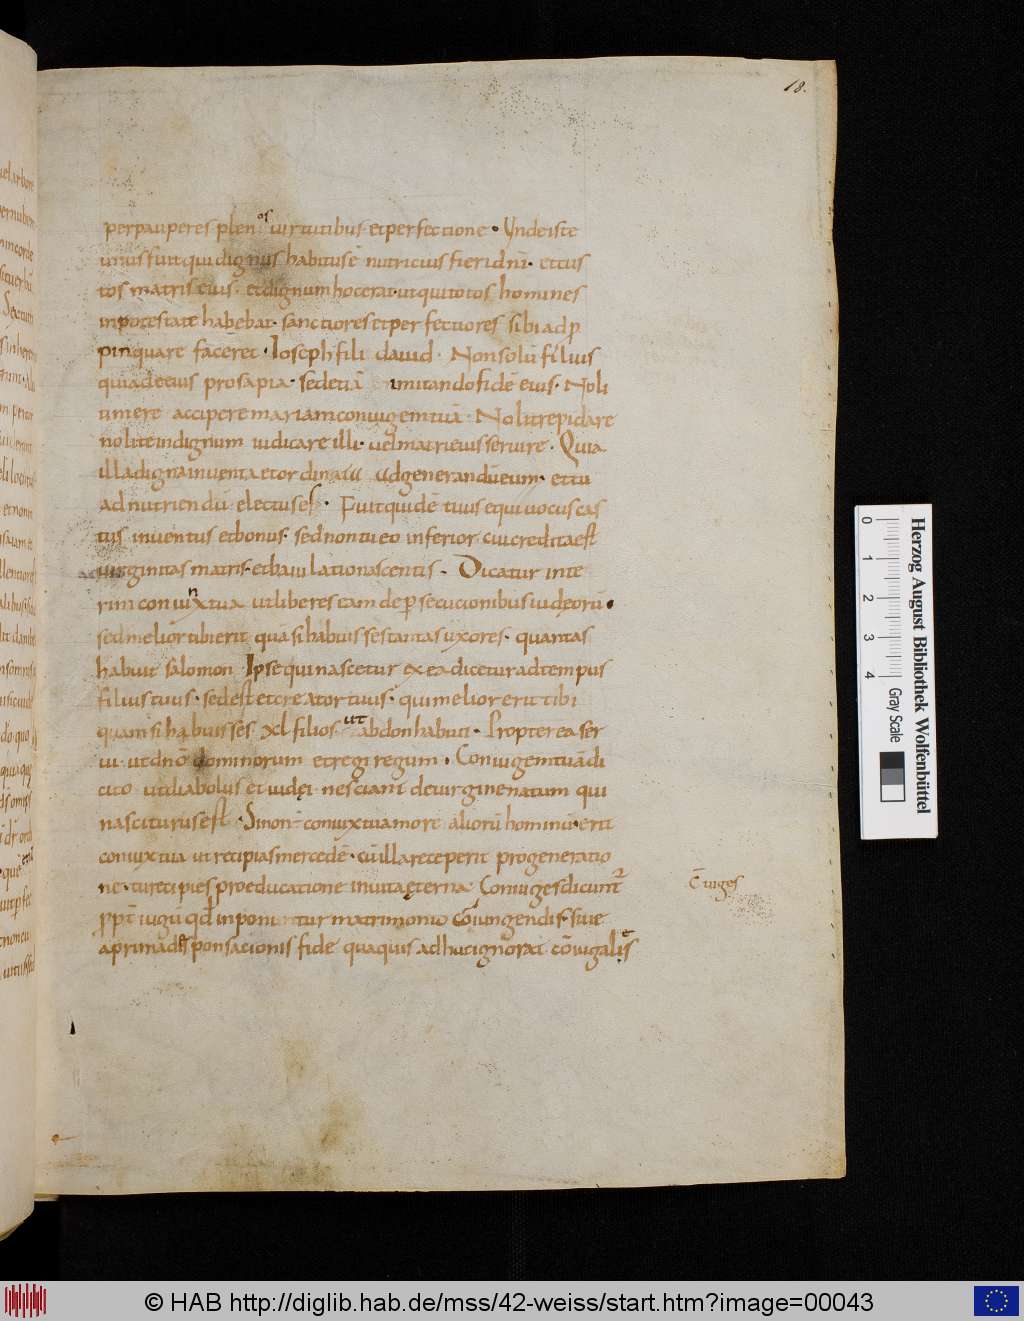 18.
per pauperes plenos uirtutibus et perfectione · Vnde iste
unus fuit qui dignus habitus ē nutricius fieri dn̄i · et cus
tos matris eius · et dignum hoc erat ut qui totos homines
in potestate habebat · sanctiores et perfectiores sibi adp̱
pinquare faceret · Ioseph fili dauid · Non solū filius
quia de eius prosapia · sed etiā imitando fidē eius · Noli
timere accipere mariam coniugem tuā · Noli trepidare
nolite indignum iudicare illi · uel matri eius seruire · Quia
illa digna inuenta et ordinata ad generandū eum · et tu
ad nutriendū electus es · Fuit quidē tuus equiuocus cas
tus inuentus et bonus · sed non tu eo inferior cui credita est
uirginitas matris · et baiulatio nascentis · Dicatur inte
rim coniunx tua ut liberes eam de p̱secucionibus iudęorū ·
sed melior tibi erit quā si habuisses tantas uxores · quantas
habuit salomon Ipse qui nascetur ex ea dicetur ad tempus
filius tuus · sed est et creator tuus · qui melior erit tibi
quam si habuisses xl filios ut abdon habuit · Propterea ser
ui · ut dn̄o dominorum et regi regum · Coniugem tuā di
cito ut diabolus et iudęi nesciant de uirgine natum qui
nasciturus est · Si non coniux tua more aliorū hominū · erit
coniux tua ut recipias mercedē · cū illa receperit pro generatio
ne · tu recipies pro educatione in uita ęterna Coniuges dicunt̄
pp̄t iugū qd̄ inponuntur matrimonio cōiungendis · siue
a prima desponsacionis fide quaquis adhuc ignorat cōiugalis
c̄iuges
Herzog August Bibliothek Wolfenbüttel
0 1 2 3 4
Gray Scale
© HAB http://diglib.hab.de/mss/42-weiss/start.htm?image=00043